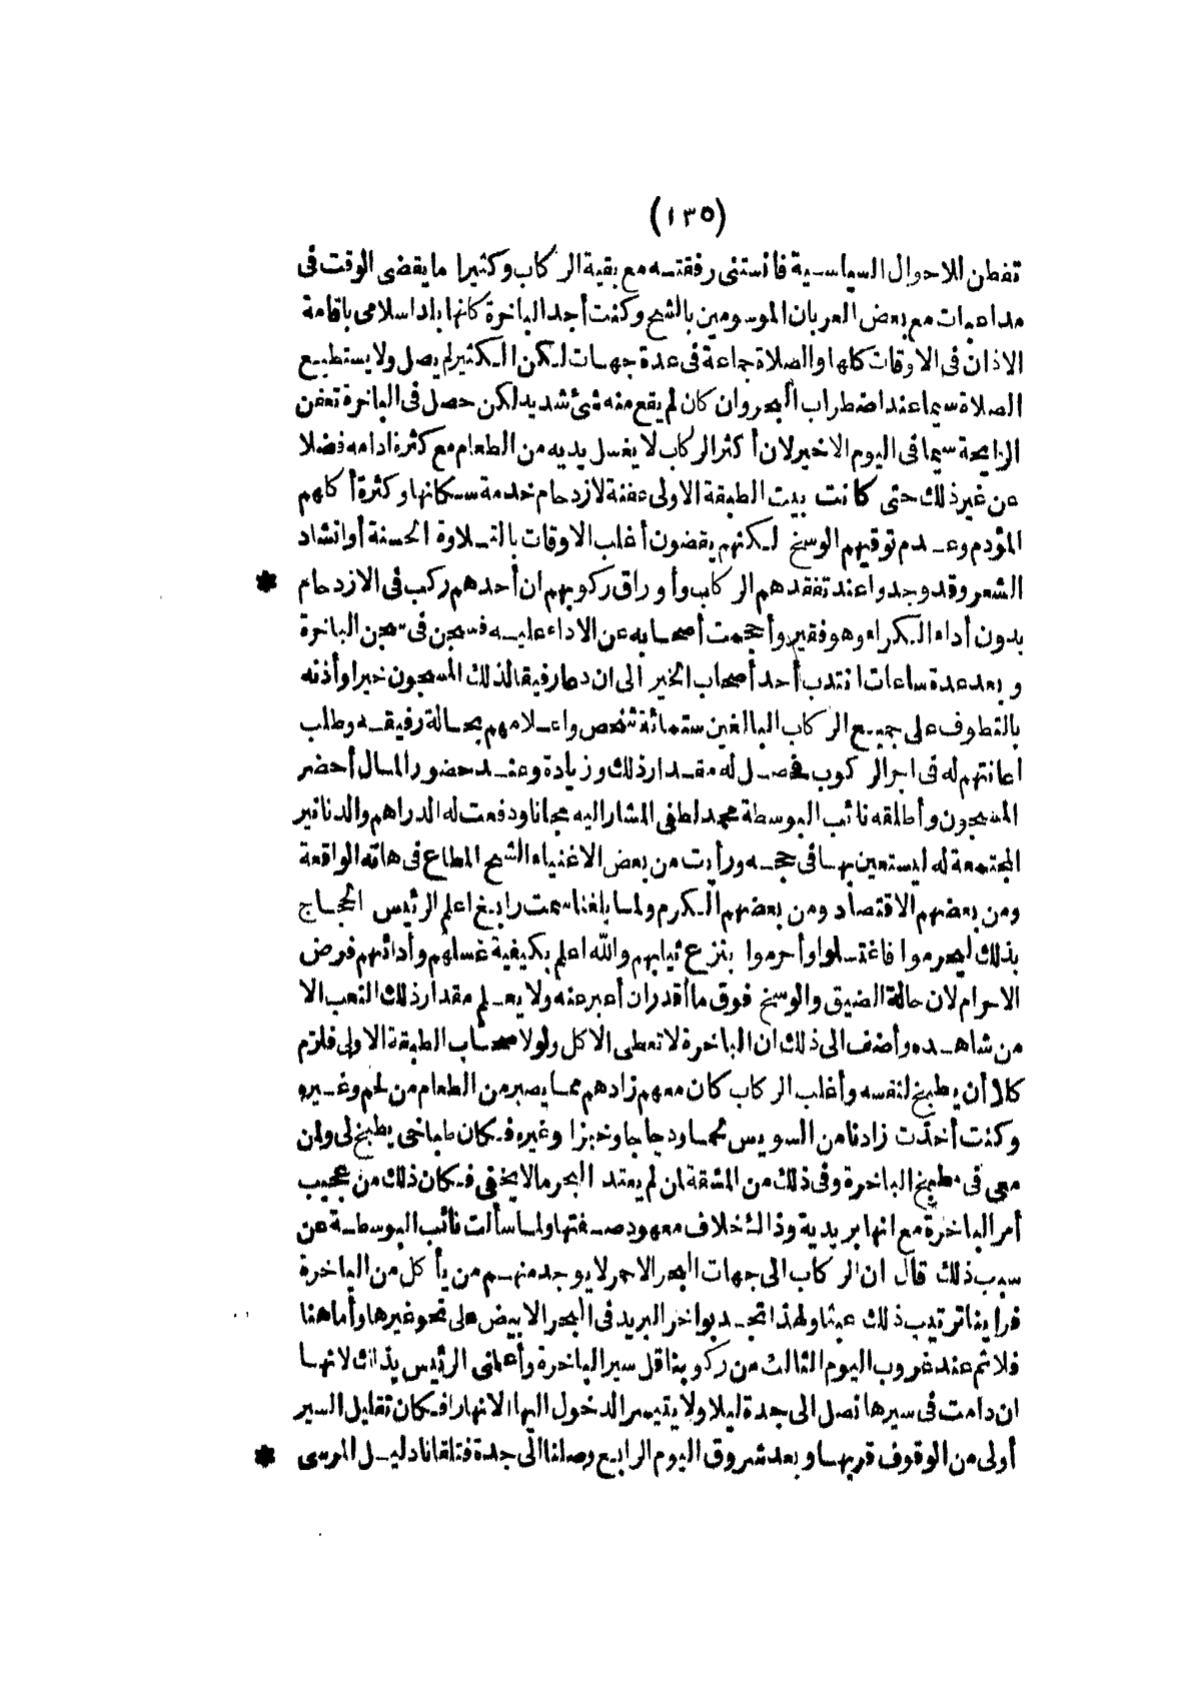 (١٣٥)
تفطن للاحوال السياسية فانستنى رفقته مع بقية الركاب وكثيرا ما يقضى الوقت فى
مداعبات مع بعض العربان الموسومين بالشح وكنت أجد الباخرة كانها بلد اسلامى باقامة
الاذان فى الاوقات كلها والصلاة جماعة فى عدة جهات لكن الكثير لم يصل ولا يستطيع
الصلاة سيما عند اضطراب البحر وان كان لم يقع منه شئ شديد لكن حصل فى الباخرة تعفن
الرايحة سيما فى اليوم الاخير لان أكثر الركاب لا يغسل يديه من الطعام مع كثرة ادامه فضلا
عن غير ذلك حتى كانت بيت الطبقة الاولى عفنة لازدحام خدمة سكانها وكثرة أكلهم
المؤدم وعدم توقيهم الوسخ لكنهم يقضون أغلب الاوقات بالتلاوة الحسنة أو انشاد
الشعر وقد وجدوا عند تفقدهم الركاب وأوراق ركوبهم ان أحدهم ركب فى الازدحام *
بدون أداء الكراء وهو فقير وأحجمت أصحابه عن الاداء عليه فسجن فى سجن الباخرة
وبعد عدة ساعات انتدب أحد أصحاب الخير الى ان دعا رفيقا لذلك المسجون خيرا وأذنه
بالتطوف على جميع الركاب البالغين ستمائة شخص واعلامهم بحالة رفيقه وطلب
اعانتهم له فى اجر الركوب فحصل له مقدار ذلك وزيادة وعند حضور المال أحضر
المسجون وأطلقه نائب البوسطة محمد لطفى المشار اليه مجانا ودفعت له الدراهم والدنانير
المجتمعة له ليستعين بها فى حجه ورأيت من بعض الاغنياء الشح المطاع فى هاته الواقعة
ومن بعضهم الاقتصاد ومن بعضهم الكرم ولما بلغنا سمت رابغ اعلم الرئيس الحجاج
بذلك ليحرموا فاغتسلوا وأحرموا بنزع ثيابهم والله اعلم بكيفية غسلهم وأدائهم فرض
الاحرام لان حالة الضيق والوسخ فوق ما أقدر ان أعبر عنه ولا يعلم مقدار ذلك التعب الا
من شاهده وأضف الى ذلك ان الباخرة لا تعطى الاكل ولولا صحاب الطبقة الاولى فلزم
كلا أن يطبخ لنفسه وأغلب الركاب كان معهم زادهم مما يصير من الطعام من لحم وغيره
وكنت أخذت زادنا من السويس لحما ودجاجا وخبزا وغيره فكان طباخى يطبخ لى ولمن
معى فى مطبخ الباخرة وفى ذلك من المشقة لمن لم يعتد البحر ما لا يخفى فكان ذلك من عجيب
أمر الباخرة مع انها بريدية وذاك خلاف معهود صفتها ولما سألت نائب البوسطة عن
سبب ذلك قال ان الركاب الى جهات البحر الاحمر لا يوجد منهم من يأكل من الباخرة
فرأينا ترتيب ذلك عبثا ولهذا تجد بواخر البريد فى البحر الابيض على نحو غيرها وأما هنا
فلا ثم عند غروب اليوم الثالث من ركوبنا قل سير الباخرة وأعلمنى الرئيس بذلك لانها
ان دامت فى سيرها نصل الى جدة ليلا ولا يتيسر الدخول اليها الا نهارا فكان تقليل السير
أولى من الوقوف قربها وبعد شروق اليوم الرابع وصلنا الى جدة فتلقانا دليل المرسى *